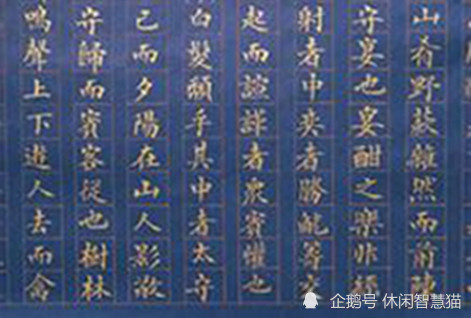 山肴野蔌雜然而前陳
守宴也宴酣之樂非
射者中奕者勝觥籌
起而諠譁者衆賓懽也
白髮頹乎其中者太守
已而夕陽在山人影散
守歸而賓客從也樹林
鳴聲上下遊人去而禽
企鹅号 休闲智慧猫